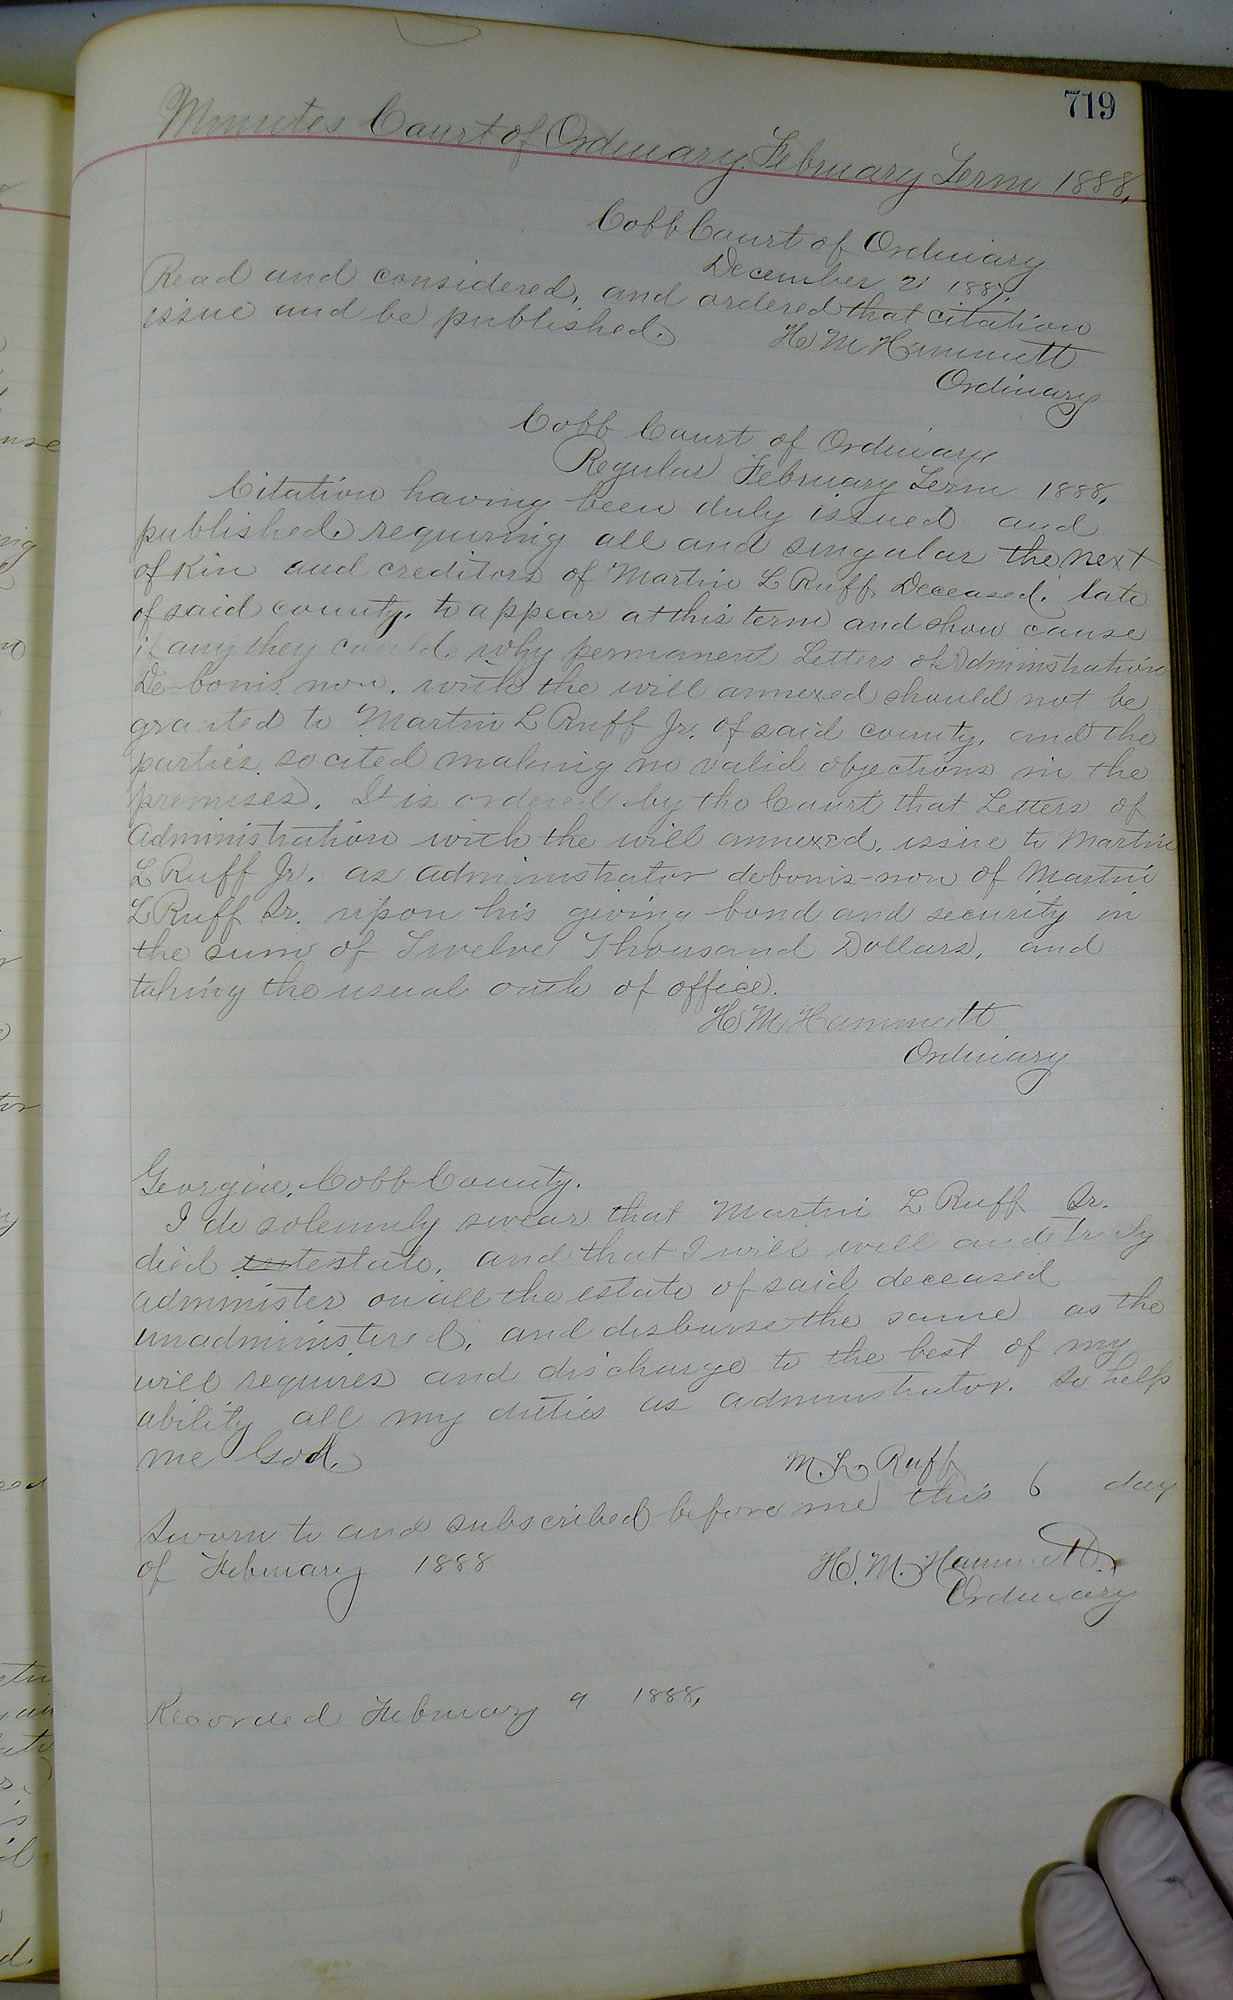 719
Minutes Court of Ordinary February Term 1888,
Cobb Court of Ordinary
December 21 1887.
Read and considered, and ordered that citation
issue and be published.
H M Hammett
Ordinary
Cobb Court of Ordinary
Regular February Term 1888,
Citation having been duly issued and
published requiring all and singular the next
of Kin and creditors of Martin L Ruff Deceased. late
of said county, to appear at this term and show cause
if any they could, why permanent Letters of Administration
De-bonis non. with the will annexed should not be
granted to Martin L Ruff Jr. of said county, and the
parties so cited making no valid objections in the
premises. It is ordered by the Court that Letters of
Administration with the will annexed, issue to Martin
L Ruff Jr. as administrator debonis-non of Martin
L Ruff Sr. upon his giving bond and security in
the sum of Twelve Thousand Dollars, and
taking the usual oath of office.
H M Hammett
Ordinary
Georgia, Cobb County.
I do solemnly swear that Martin L Ruff Sr.
died testate, and that I will well and truly
administer on all the estate of said deceased
unadministered, and disburse the same as the
will requires and discharge to the best of my
ability all my duties as administrator. So help
me God.
M. L. Ruff
Sworn to and subscribed before me this 6 day
of February 1888
H. M. Hammett
Ordinary
Recorded February 9 1888,